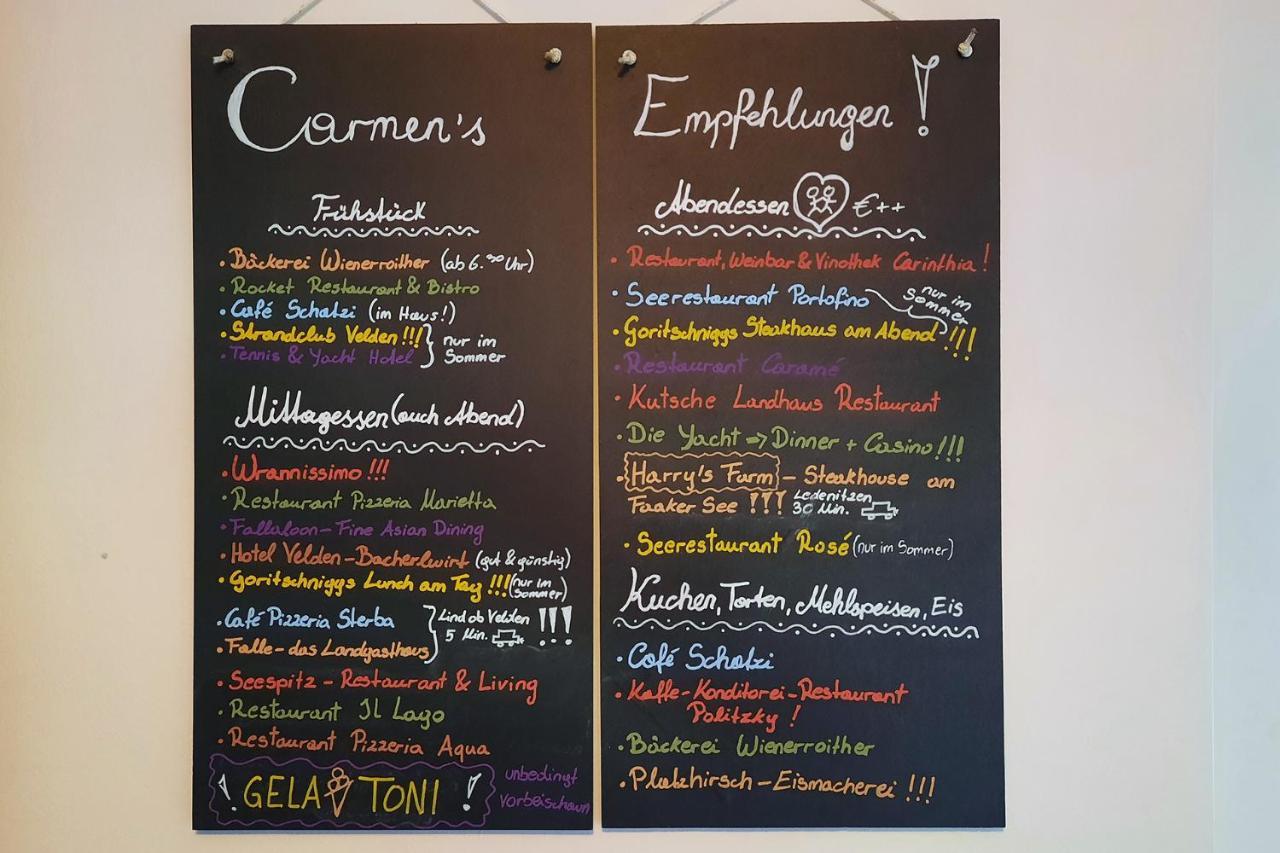 Carmen's
Frühstück
• Bäckerei Wienerroither (ab 6.00 Uhr)
• Rocket Restaurant & Bistro
• Café Schatzi (im Haus!)
• Strandclub Velden !!!
• Tennis & Yacht Hotel
nur im
Sommer
Mittagessen (auch Abend)
• Wrannissimo !!!
• Restaurant Pizzeria Marietta
• Fallaloon - Fine Asian Dining
• Hotel Velden - Bacherlwirt (gut & günstig)
• Goritschniggs Lunch am Tag !!! (nur im
Sommer)
• Café Pizzeria Sterba
• Falle - das Landgasthaus
Lind ob Velden
5 Min. !!!
• Seespitz - Restaurant & Living
• Restaurant Il Lago
• Restaurant Pizzeria Aqua
! GELA TONI !
unbedingt
vorbeischaun
Empfehlungen !
Abendessen €++
• Restaurant, Weinbar & Vinothek Carinthia !
• Seerestaurant Portofino
nur im
Sommer
• Goritschniggs Steakhaus am Abend !!!
• Restaurant Caramé
• Kutsche Landhaus Restaurant
• Die Yacht => Dinner + Casino !!!
• Harry's Farm - Steakhouse am
Faaker See !!! Ledenitzen
30 Min.
• Seerestaurant Rosé (nur im Sommer)
Kuchen, Torten, Mehlspeisen, Eis
• Café Schatzi
• Kaffe-Konditorei-Restaurant
Politzky !
• Bäckerei Wienerroither
• Platzhirsch - Eismacherei !!!